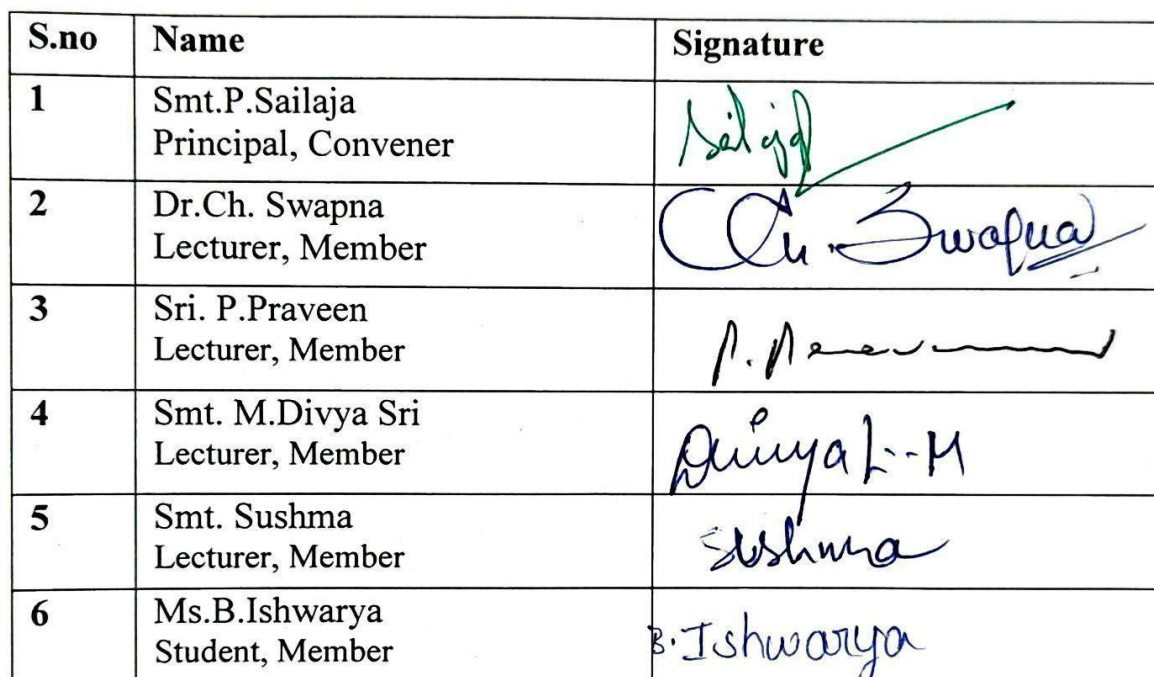 S.no Name Signature
1 Smt.P.Sailaja
Principal, Convener
Sailaja
2 Dr.Ch. Swapna
Lecturer, Member
Ch. Swapna
3 Sri. P.Praveen
Lecturer, Member
P.
4 Smt. M.Divya Sri
Lecturer, Member
5 Smt. Sushma
Lecturer, Member
Sushma
6 Ms.B.Ishwarya
Student, Member
B. Ishwarya